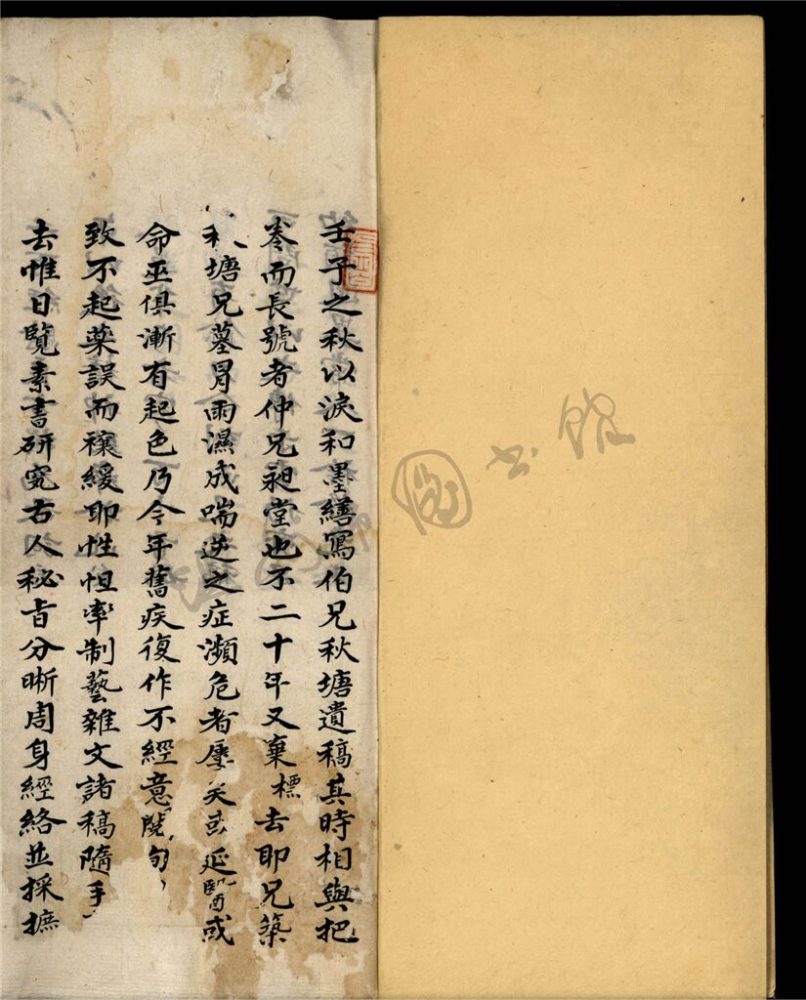 壬子之秋以淚和墨繕寫伯兄秋塘遺稿其時相與把
卷而長號者仲兄昶堂也不二十年又棄標去耶兄築
秋塘兄墓冒雨濕成喘逆之症瀕危者屢矣或延醫或
命巫俱漸有起色乃今年舊疾復作不經意閱旬
致不起藥誤而禳緩耶性怛率制藝雜文諸稿隨手
去惟日覽素書研究古人秘旨分晰周身經絡並採摭
圖書館